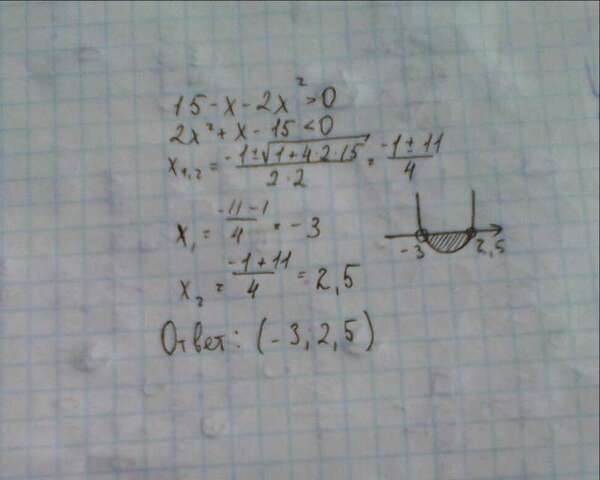 15 - x - 2x² > 0
2x² + x - 15 < 0
x₁,₂ = (-1 ± √(1 + 4·2·15))/(2·2) = (-1 ± 11)/4
x₁ = (-11 - 1)/4 = -3
-3 2,5
x₂ = (-1 + 11)/4 = 2,5
Ответ: (-3; 2,5)